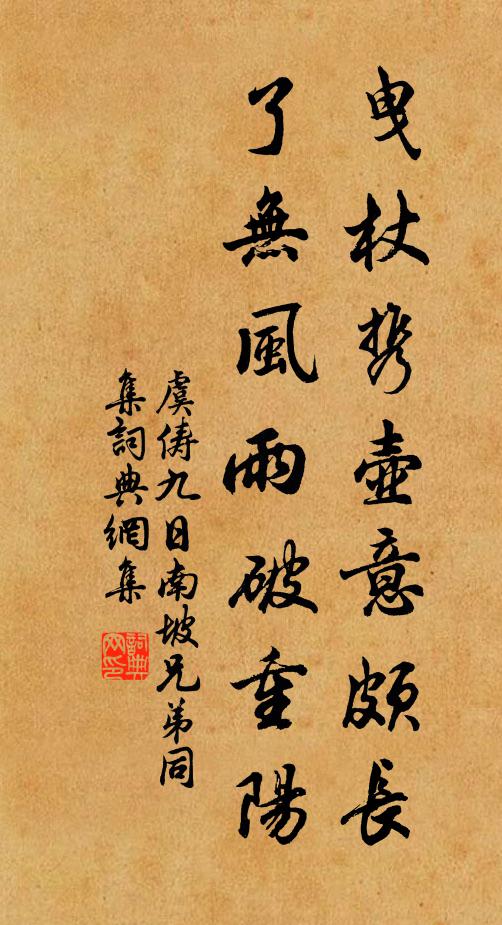 曳杖携壺意頗長
了無風雨破重陽
虞儔九日南坡兄弟同
集詞典網集
詞典
网印